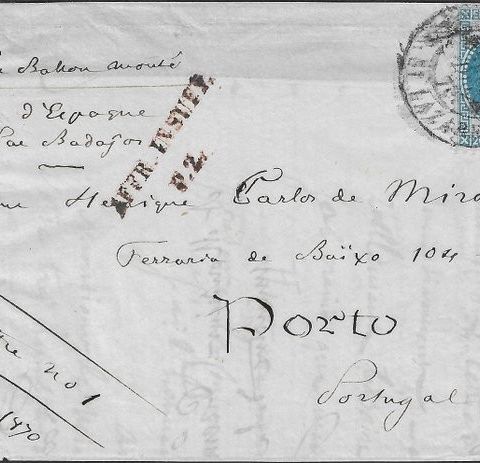 Ballon monté
d'Espagne
Badajos
AFFR. INSUFF.
P.2.
Henrique Carlos de Mira
Ferraria de Baïxo 104
Porto
Portugal
no 1
1870